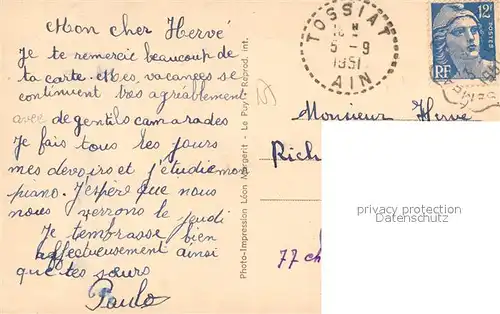 Mon cher Hervé
Je te remercie beaucoup de
ta carte. Mes vacances se
continuent très agréablement
avec de gentils camarades
Je fais tous les jours
mes devoirs et j'étudie mon
piano. J'espère que nous
nous verrons le jeudi
Je t'embrasse bien
affectueusement ainsi
que tes sœurs
Paulo
Photo-Impression Léon Margerit - Le Puy - Réprod. int.
TOSSIAT
5 - 9
1951
AIN
12F
POSTES
RF
Monsieur Herve
Rich
privacy protection
77 ch